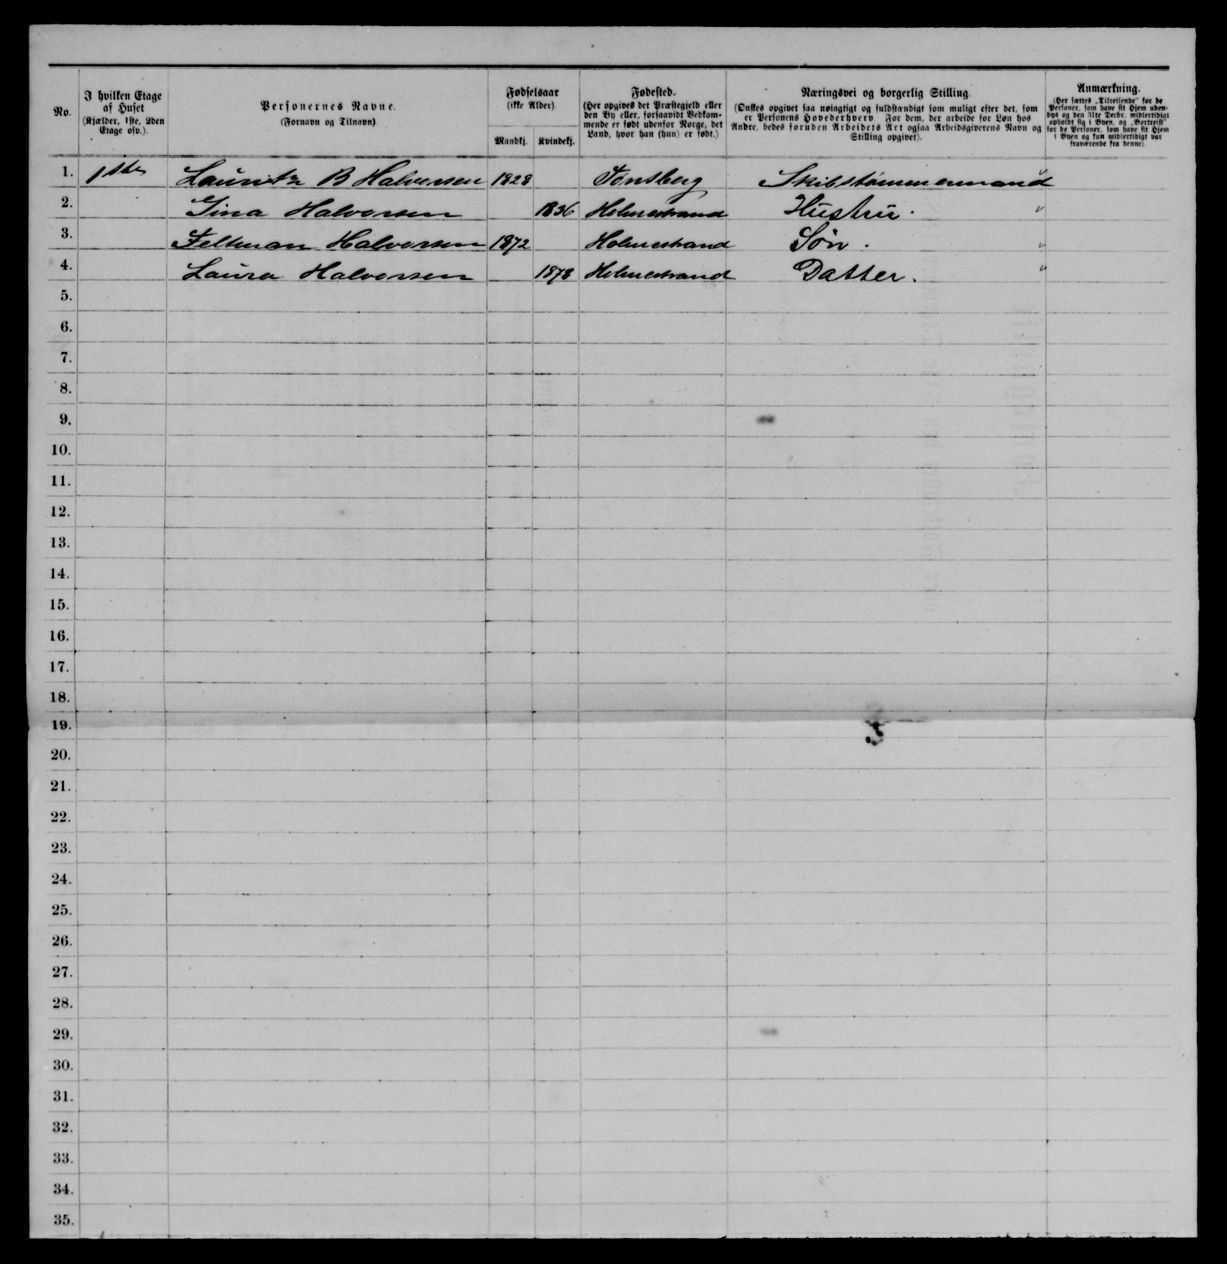 No.
I hvilken Etage af Huset
(Kjælder, 1ste, 2den Etage osv.).
Personernes Navne.
(Fornavn og Tilnavn)
Fødselsaar
(ikke Alder).
Mandkj.
Kvindekj.
Fødested.
(Her opgives det Præstegjeld eller
den By eller, forsaavidt Vedkom-
mende er født udenfor Norge, det
Land, hvor han (hun) er født.)
Næringsvei og borgerlig Stilling.
(Ønskes opgivet saa nøiagtigt og fuldstændigt som muligt efter det, som
er Personens Hovederhverv. For dem, der arbeide for Løn hos
Andre, bedes foruden Arbeidets Art ogsaa Arbeidsgiverens Navn og
Stilling opgivet).
Anmærkning.
(Her sættes „Tilreisende" for de
Personer, som have sit Hjem uden-
bys og den 31te Decbr. midlertidigt
opholdt sig i Byen, og „Bortreist"
for de Personer, som have sit Hjem
i Byen og kun midlertidigt var
fraværende fra denne).
1. 1ste Lauritz B Halvorsen 1828 Tønsberg Skibstømmermand "
2. Tina Halvorsen 1836 Holmestrand Hustru. "
3. Feltman Halvorsen 1872 Holmestrand Søn. "
4. Laura Halvorsen 1878 Holmestrand Datter. "
5.
6.
7.
8.
9.
10.
11.
12.
13.
14.
15.
16.
17.
18.
19.
20.
21.
22.
23.
24.
25.
26.
27.
28.
29.
30.
31.
32.
33.
34.
35.